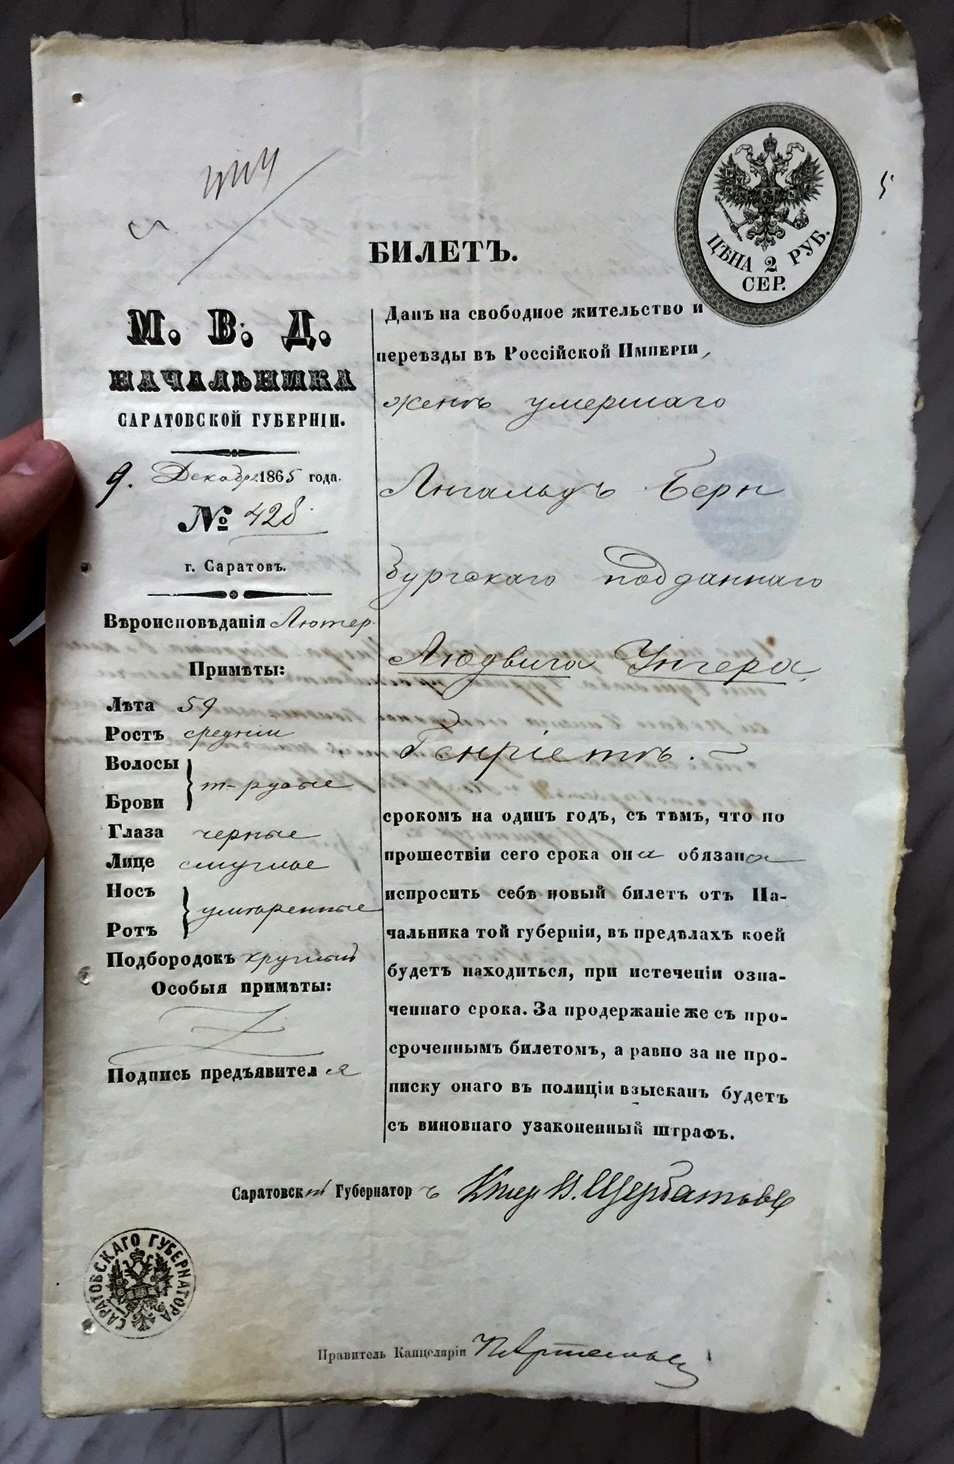 ЦѢНА 2 РУБ.
СЕР.
БИЛЕТЪ.
М. В. Д.
НАЧАЛЬНИКА
САРАТОВСКОЙ ГУБЕРНІИ.
9. Декабр. 1865 года.
№ 428
г. Саратовъ.
Вѣроисповѣданія Лютер.
Примѣты:
Лѣта 59
Ростъ средній
Волосы
т-русые
Брови
Глаза черные
Лице смуглое
Носъ
умѣренные
Ротъ
Подбородокъ круглый
Особыя примѣты:
Подпись предъявителя
Данъ на свободное жительство и
переѣзды въ Россійской Имперіи,
женѣ умершаго
Ангальдъ Берн
бургскаго подданнаго
Людвига Унгера
Генріетѣ.
срокомъ на одинъ годъ, съ тѣмъ, что по
прошествіи сего срока она обязана
испросить себѣ новый билетъ отъ На-
чальника той губерніи, въ предѣлахъ коей
будетъ находиться, при истеченіи озна-
ченнаго срока. За продержаніе же съ про-
сроченнымъ билетомъ, а равно за не про-
писку онаго въ полиціи взысканъ будетъ
съ виновнаго узаконенный штрафъ.
Саратовскій Губернаторъ Князь В. Щербатовъ
САРАТОВСКАГО ГУБЕРНАТОРА
Правитель Канцеляріи